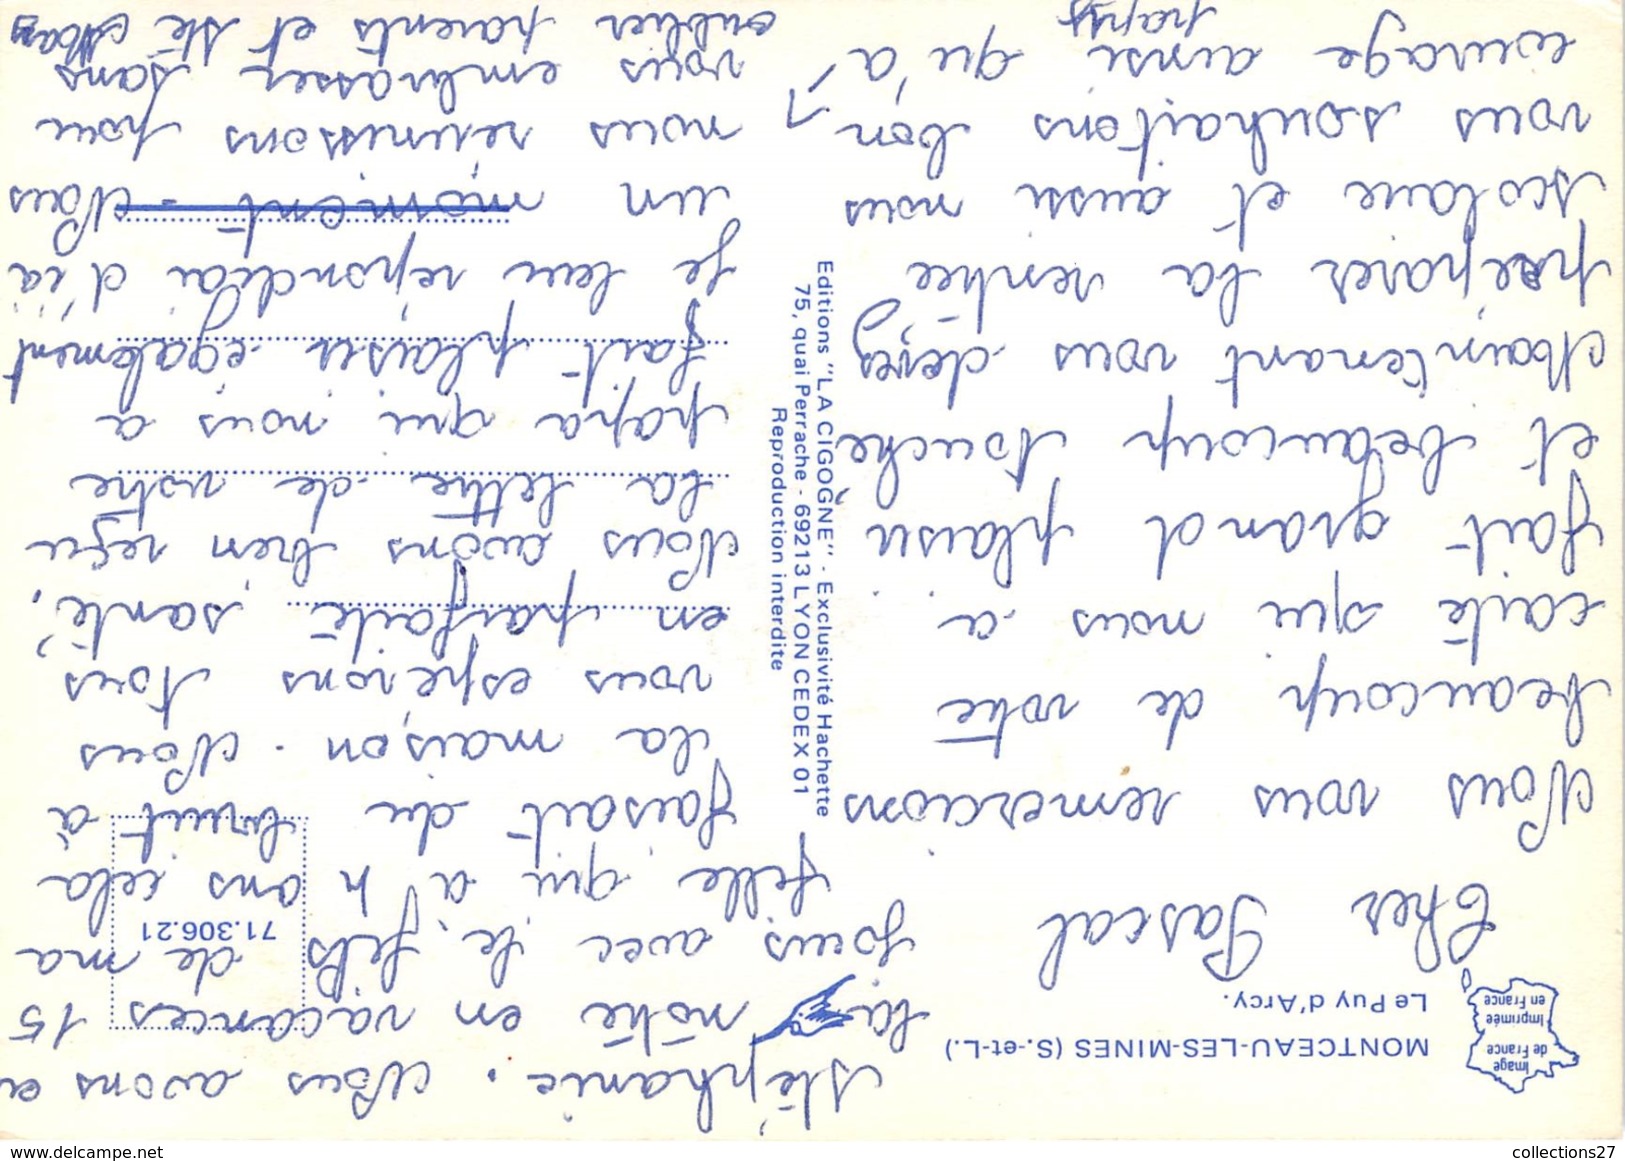 Image
de France
Imprimée
en France
MONTCEAU-LES-MINES (S.-et-L.)
Le Puy d'Arcy.
Cher Pascal
Nous vous remercions
beaucoup de votre
carte qui nous a
fait grand plaisir
et beaucoup touché
Maintenant vous devez
préparer la rentrée
scolaire et aussi nous
vous souhaitons bon
courage ainsi qu'à
papy
Stéphanie. Nous avons eu
la nôtre en vacances 15
jours avec le fils de ma
fille qui a 4 ans cela
faisait du bruit à
la maison. Nous
vous espérons tous
en parfaite santé,
Nous avons bien reçu
la lettre de votre
papa qui nous a
fait plaisir également
Je leur répondrai d'ià
un moment - Nous
nous réunissons pour
vous embrasser sans
oublier parents et sté
Editions "LA CIGOGNE" - Exclusivité Hachette
75, quai Perrache - 69213 LYON CEDEX 01
Reproduction interdite
71.306.21
collections27